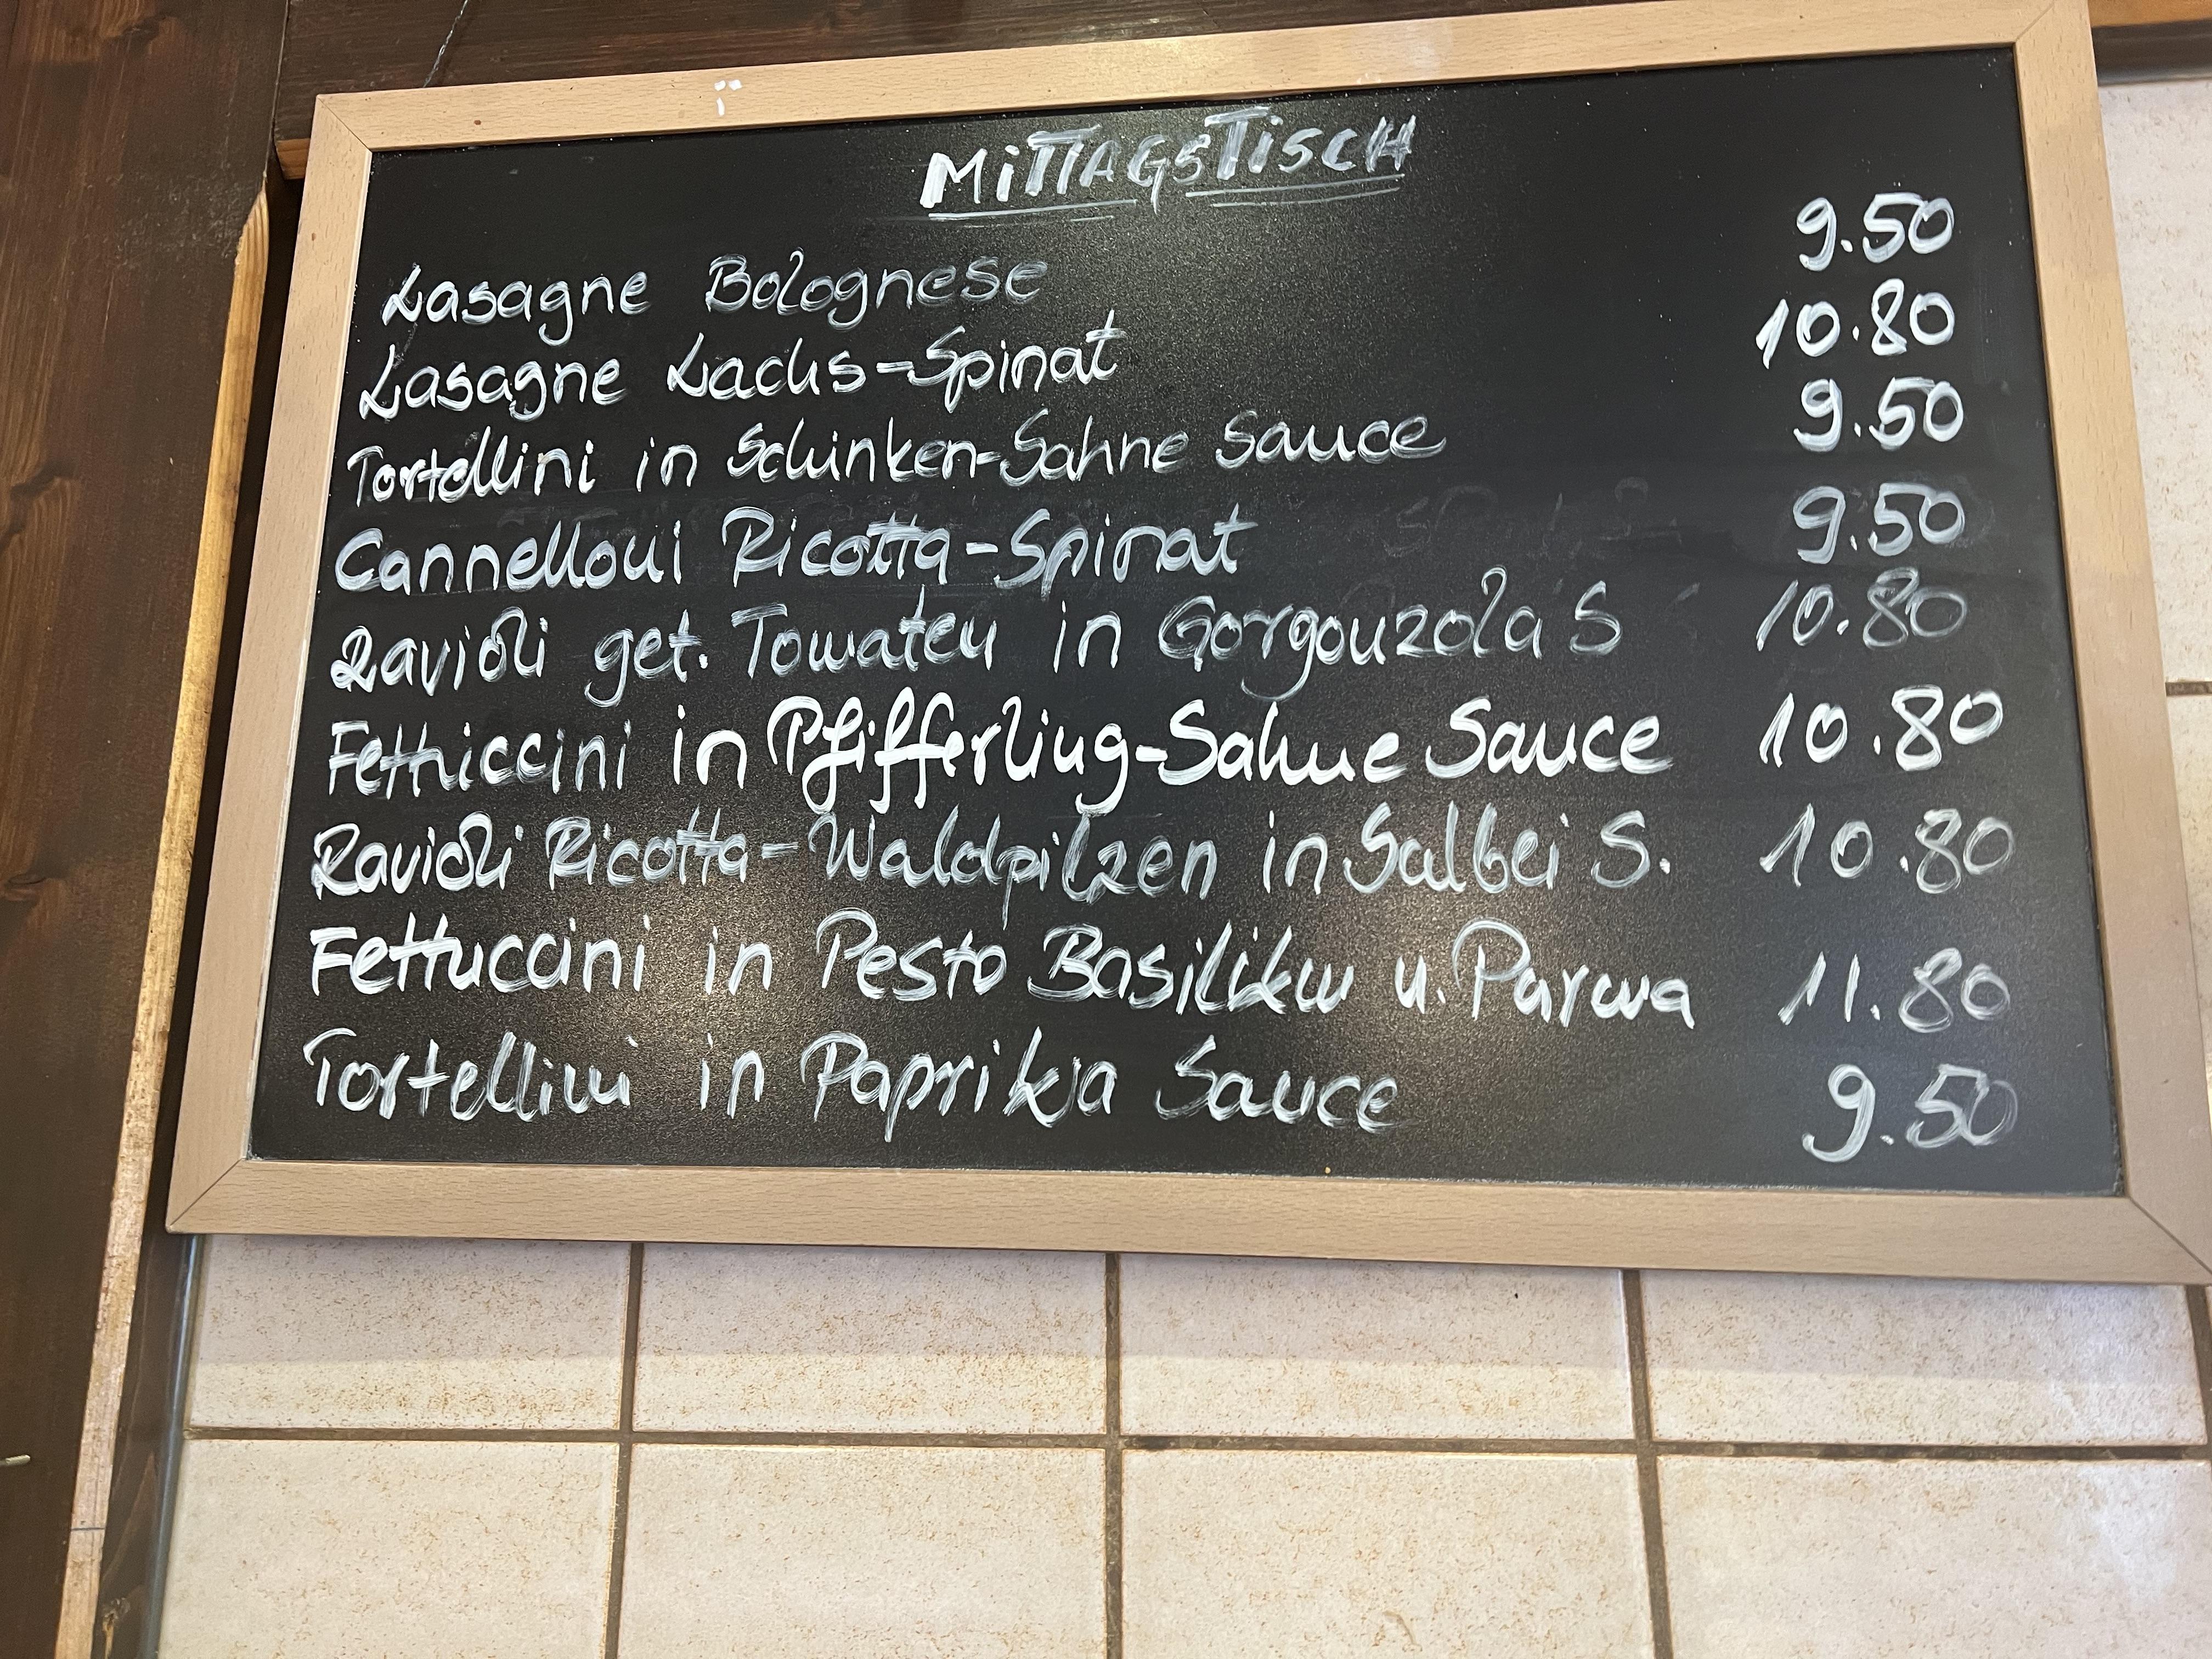 MiTTAGSTiSCH
Lasagne Bolognese 9.50
Lasagne Lachs-Spinat 10.80
Tortellini in Schinken-Sahne Sauce 9.50
Cannelloni Ricotta-Spinat 9.50
Ravioli get. Tomaten in Gorgonzola S 10.80
Fethiccini in Pfifferling-Sahne Sauce 10.80
Ravioli Ricotta-Waldpilzen in Salbei S. 10.80
Fettuccini in Pesto Basilikum u. Parma 11.80
Tortellini in Paprika Sauce 9.50